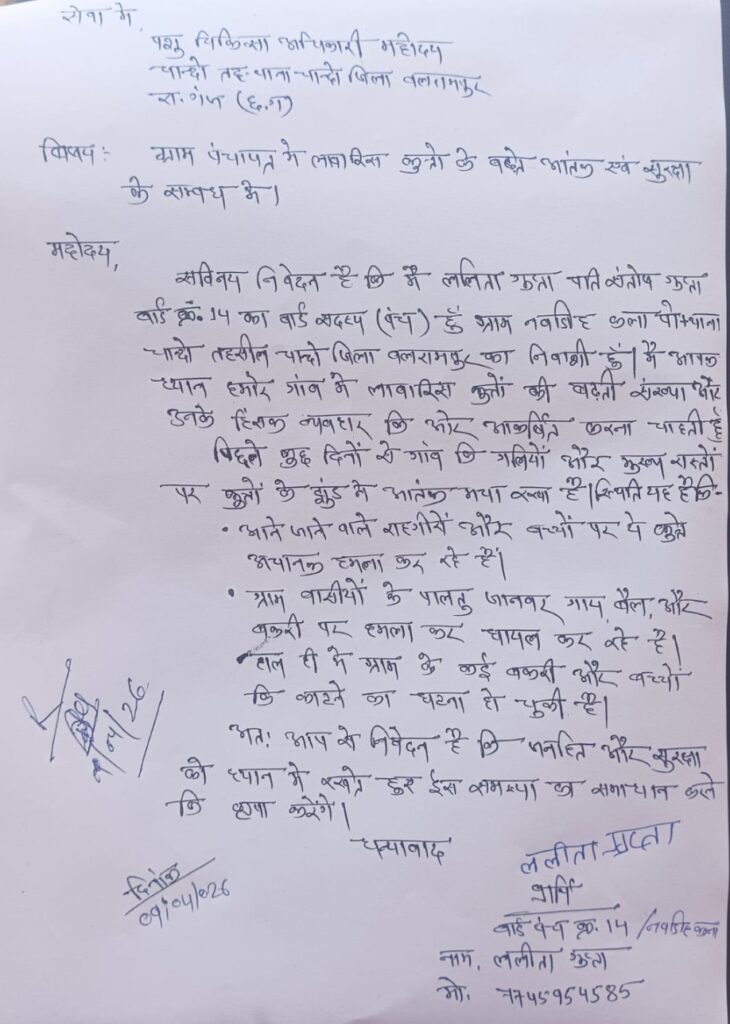 सेवा में,
पशु चिकित्सा अधिकारी महोदय
चान्दो तह. थाना चान्दो जिला बलरामपुर
रा. गंज (छ.ग)
विषय: ग्राम पंचायत मे लावारिस कुत्तो के बढ़ते आंतक एवं सुरक्षा
के सम्बध मे।
महोदय,
सविनय निवेदन है कि मै ललिता गुप्ता पति संतोष गुप्ता
वार्ड क्र. 14 का वार्ड सदस्य (पंच) हूँ ग्राम नवाडीह कला पो+थाना
चान्दो तहसील चान्दो जिला बलरामपुर का निवासी हूँ। मै आपक
ध्यान हमारे गांव मे लावारिस कुत्तों की बढ़ती संख्या और
उनके हिंसक व्यवहार कि ओर आकर्षित करना चाहती हूँ
पिछले कुछ दिनों से गांव कि गलियों और मुख्य रास्तों
पर कुत्तों के झुंड मे आतंक मचा रखा है। स्थिति यह है कि-
• आने जाने वाले राहगीरों और बच्चों पर ये कुत्ते
अचानक हमला कर रहे हैं।
• ग्राम वासीयों के पालतु जानवर गाय, बैल, और
बकरी पर हमला कर घायल कर रहे है।
हाल ही मे ग्राम के कई बकरी और बच्चों
कि काटने का घटना हो चुकी है।
अत: आप से निवेदन है कि जनहित और सुरक्षा
को ध्यान मे रखते हुए ईस समस्या का समाधान करने
कि कृपा करेंगे।
धन्यवाद
ललीता गुप्ता
प्रार्थि
वार्ड पंच क्र. 14 / नवाडीह कला
नाम. ललीता गुप्ता
मो. 7745954585
दिनांक
09/04/026